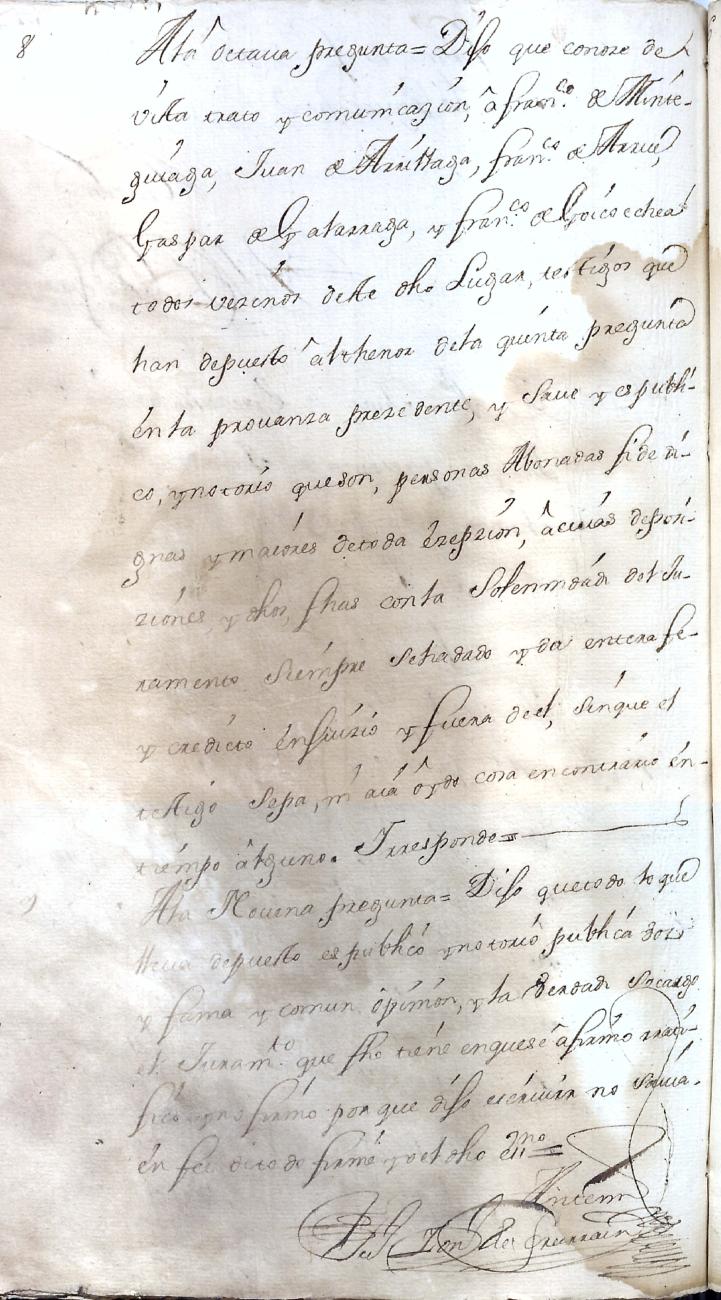 8 A la octaua pregunta= Dijo que conoze de
vista trato y comunicazion, â fran.co de Minte-
guiaga, Juan de Arrittaga, fran.co de Arrue,
Gaspar de Yatarraga, y fran.co de Goicoechea
todos vezinos deste dho Lugar, testigos que
han depuesto âlthenor dela quinta pregunta
én la prouanza prezedente, y saue y es publi-
co, ynotorio queson, personas Abonadas fidedi-
gnas y maiores detoda éxepzion, âcuias deposi-
ziónes, y dhos, fhas conla Solemnidad del Ju-
ramento siempre sehadado y da entera fe-
y credito énjuizio y fuera de el, sinque el
testigo Sepa, ni aia ôydo cosa encontrario én-
tiempo âlguno. Yrresponde=
9 A la Nouena pregunta= Dijo quetodo loque
lleua depuesto espublico ynotorio publica voz
y fama y comun ôpinion, y la verdad socargo
el Juram.to que fho tiene enquese âfirmo rrati-
ficó yno firmó por que dijo escriuir no sauia.
én fee deto do firmé yo el dho ess.no=
Antemi